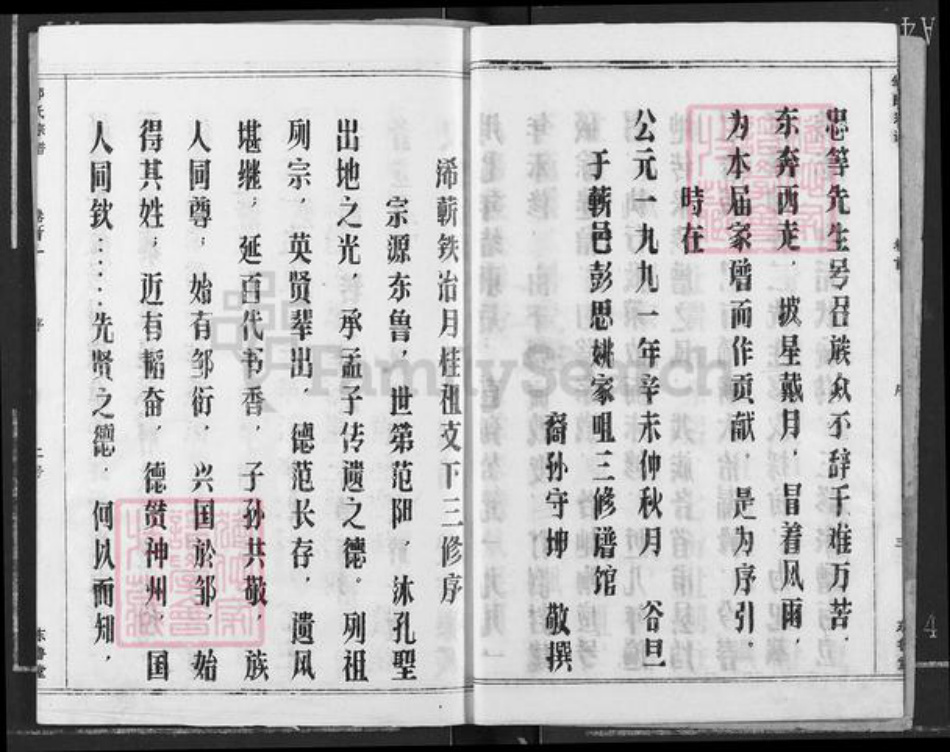 忠等先生号召族众不辞千难万苦,
东奔西走,披星戴月,冒着风雨,
为本届家增而作贡献,是为序引。
時在
公元一九九一年辛未仲秋月 谷旦
于蕲邑彭思姚家咀三修谱馆
裔孙守坤 敬撰
浠蕲铁治月桂祖支下三修序
宗源东鲁,世第范阳,沐孔聖
出地之光,承孟子传遗之德。列祖
列宗,英贤辈出,德范长存,遗风
堪继,延百代书香,子孙共敬,族
人同尊,始有邹衍,兴国於邹,始
得其姓,近有韬奋,德贯神州,国
人同钦……先贤之德,何以而知,
FamilySearch